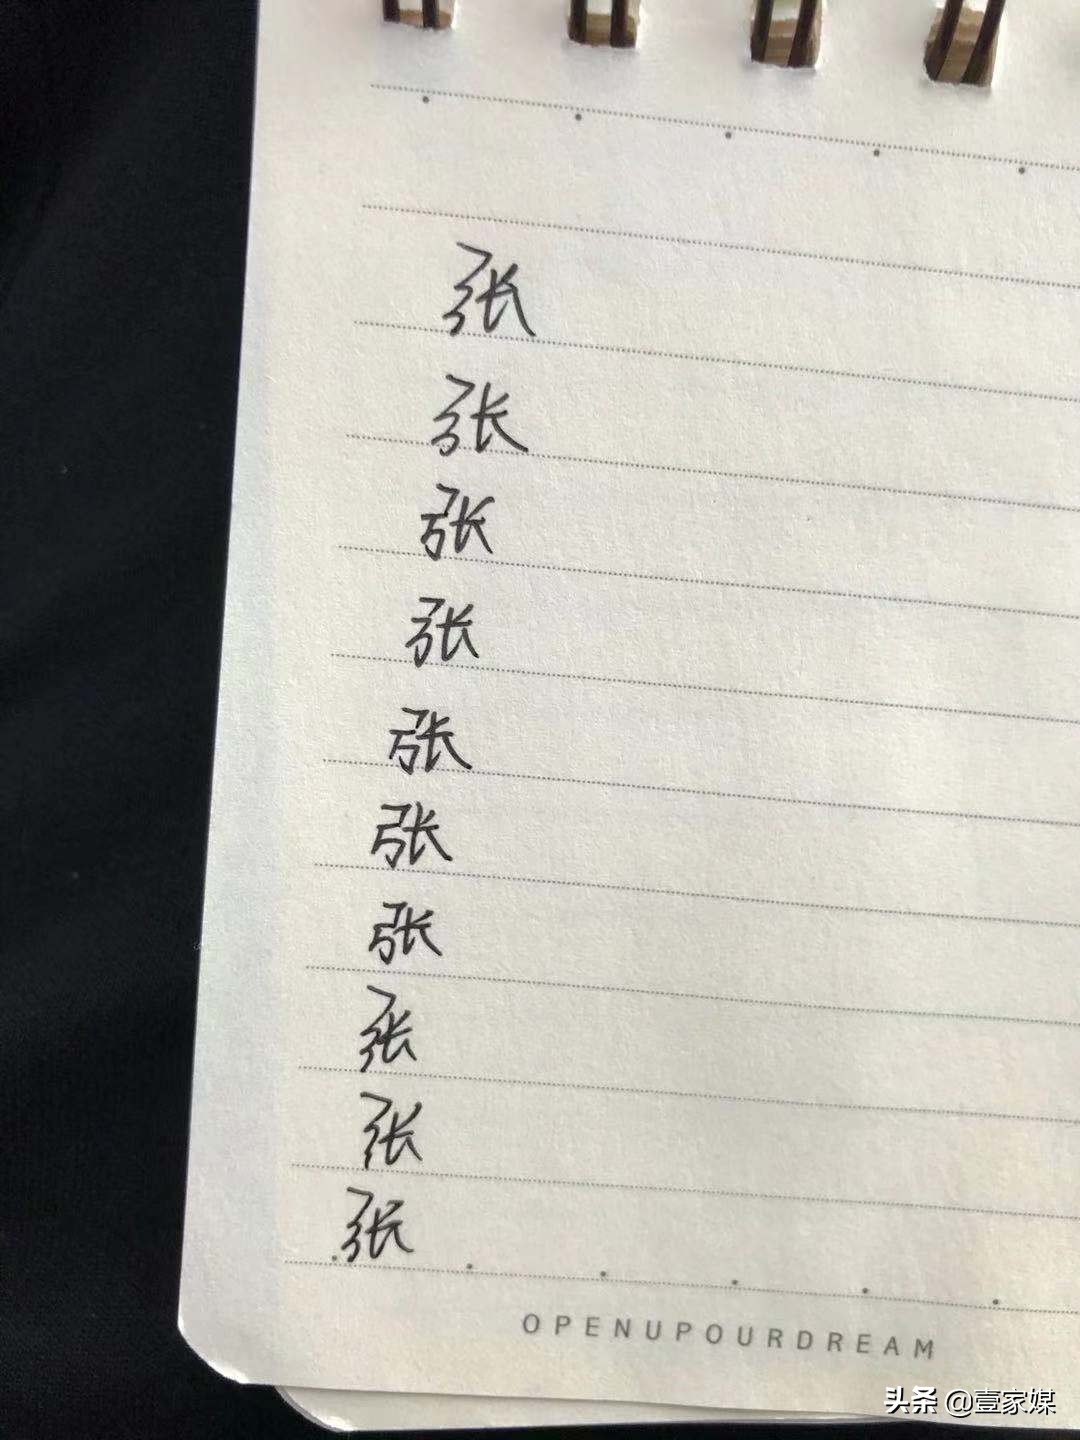 张
张
张
张
张
张
张
张
张
张
OPENUPOURDREAM
头条 @壹家媒